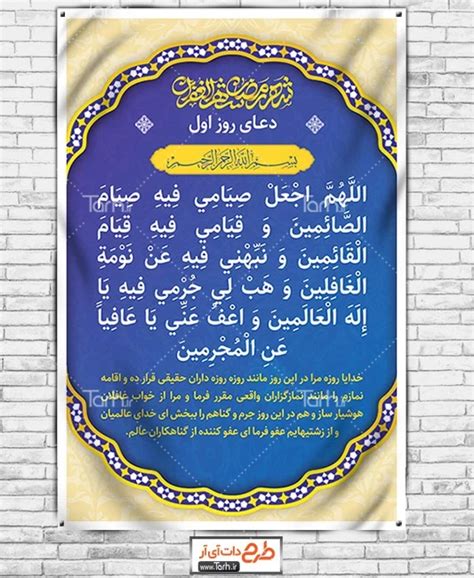 شهر رمضان الذی انزل فیه القرآن
دعای روز اول
بسم الله الرحمن الرحیم
اللَّهُمَّ اجْعَلْ صِيَامِي فِيهِ صِيَامَ
الصَّائِمِينَ وَ قِيَامِي فِيهِ قِيَامَ
الْقَائِمِينَ وَ نَبِّهْنِي فِيهِ عَنْ نَوْمَةِ
الْغَافِلِينَ وَ هَبْ لِي جُرْمِي فِيهِ يَا
إِلَهَ الْعَالَمِينَ وَ اعْفُ عَنِّي يَا عَافِياً
عَنِ الْمُجْرِمِينَ
خدایا روزه مرا در این روز مانند روزه روزه داران حقیقی قرار ده و اقامه
نمازم را مانند نمازگزاران واقعی مقرر فرما و مرا از خواب غافلان
هوشیار ساز و هم در این روز جرم و گناهم را ببخش ای خدای عالمیان
و از زشتیهایم عفو فرما ای عفو کننده از گناهکاران عالم.
طرح دات آی آر
www.Tarh.ir